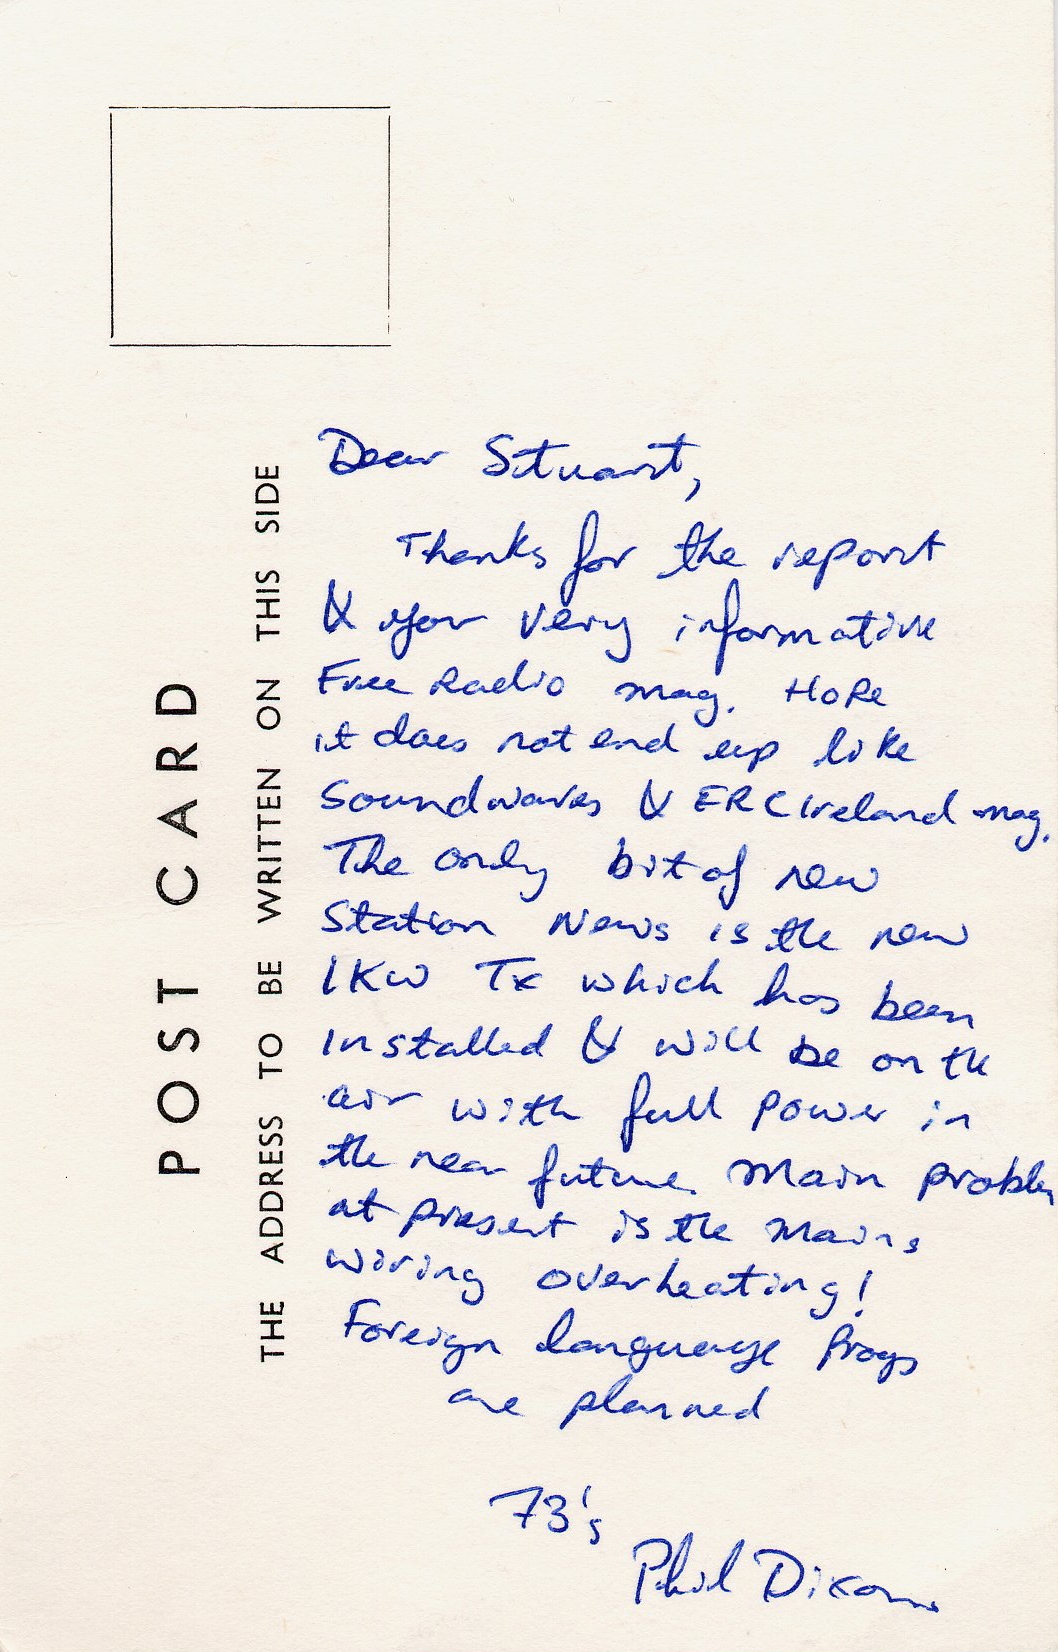 POST CARD
THE ADDRESS TO BE WRITTEN ON THIS SIDE
Dear Stuart,
Thanks for the report
& your very informative
Free Radio mag. Hope
it does not end up like
Soundwaves & ERC Ireland mag.
The only bit of new
Station News is the new
1KW Tx which has been
Installed & will be on the
air with full power in
the near future. Main problem
at present is the mains
wiring overheating!
Foreign language progs
are planned
73's
Phil Dixon